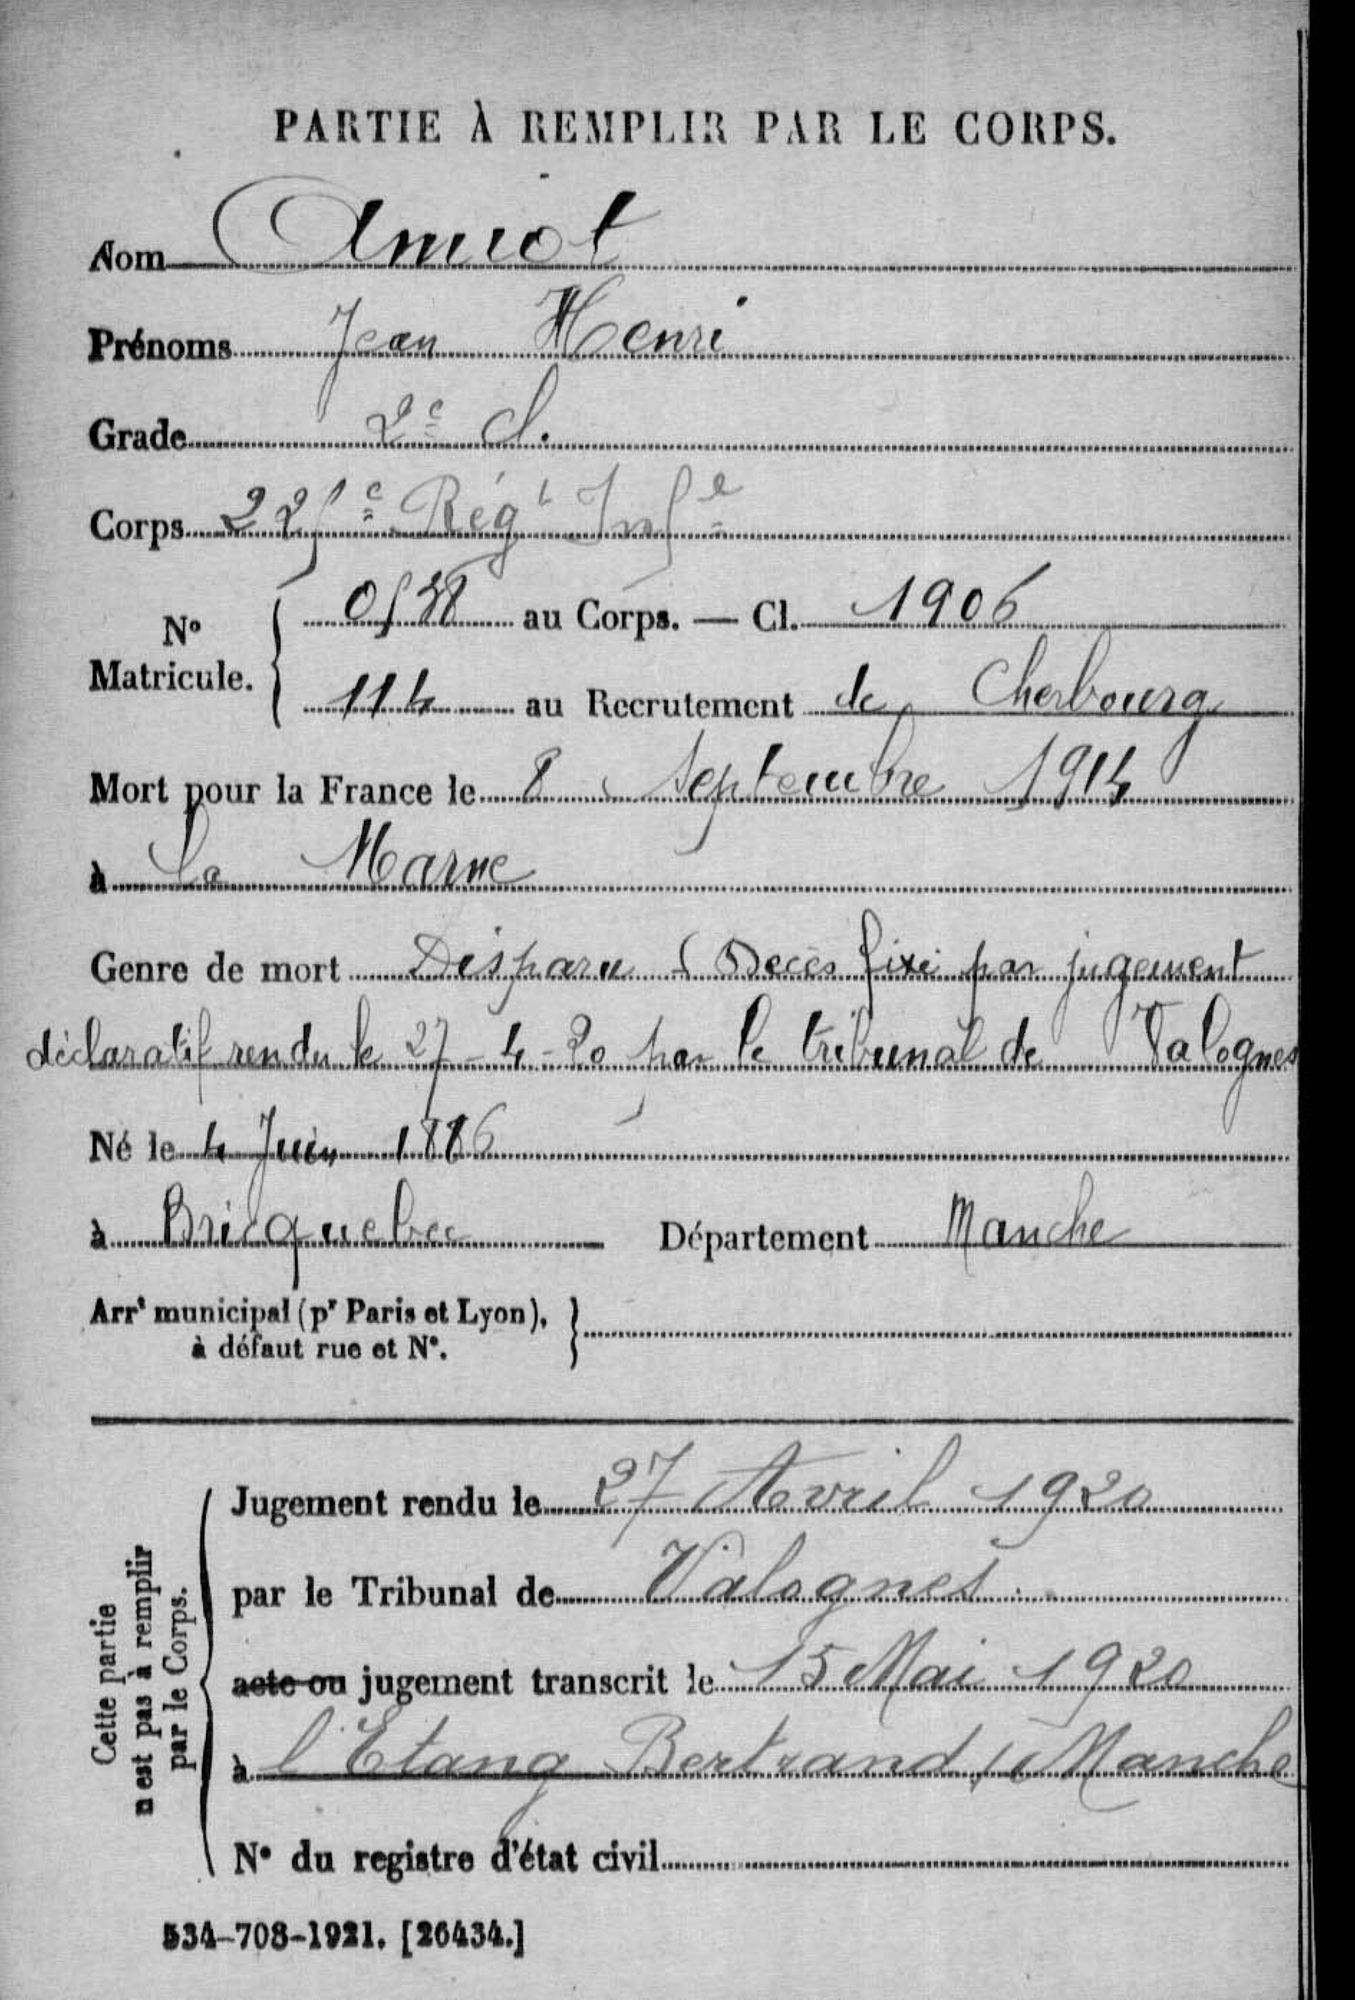 PARTIE À REMPLIR PAR LE CORPS.
Nom Amiot
Prénoms Jean Henri
Grade 2e cl.
Corps 225e Régt Infie
No Matricule. 0538 au Corps. — Cl. 1906
114 au Recrutement de Cherbourg
Mort pour la France le 8 Septembre 1914
à la Marne
Genre de mort Disparu (Décès fixé par jugement
déclaratif rendu le 27-4-20 par le tribunal de Valognes
Né le 4 Juin 1886
à Bricquebec Département Manche
Arrt municipal (pr Paris et Lyon),
à défaut rue et No.
Cette partie
n'est pas à remplir
par le Corps.
Jugement rendu le 27 Avril 1920
par le Tribunal de Valognes
acte ou jugement transcrit le 15 Mai 1920
à l'Etang Bertrand (Manche
No du registre d'état civil
534-708-1921. [26434.]